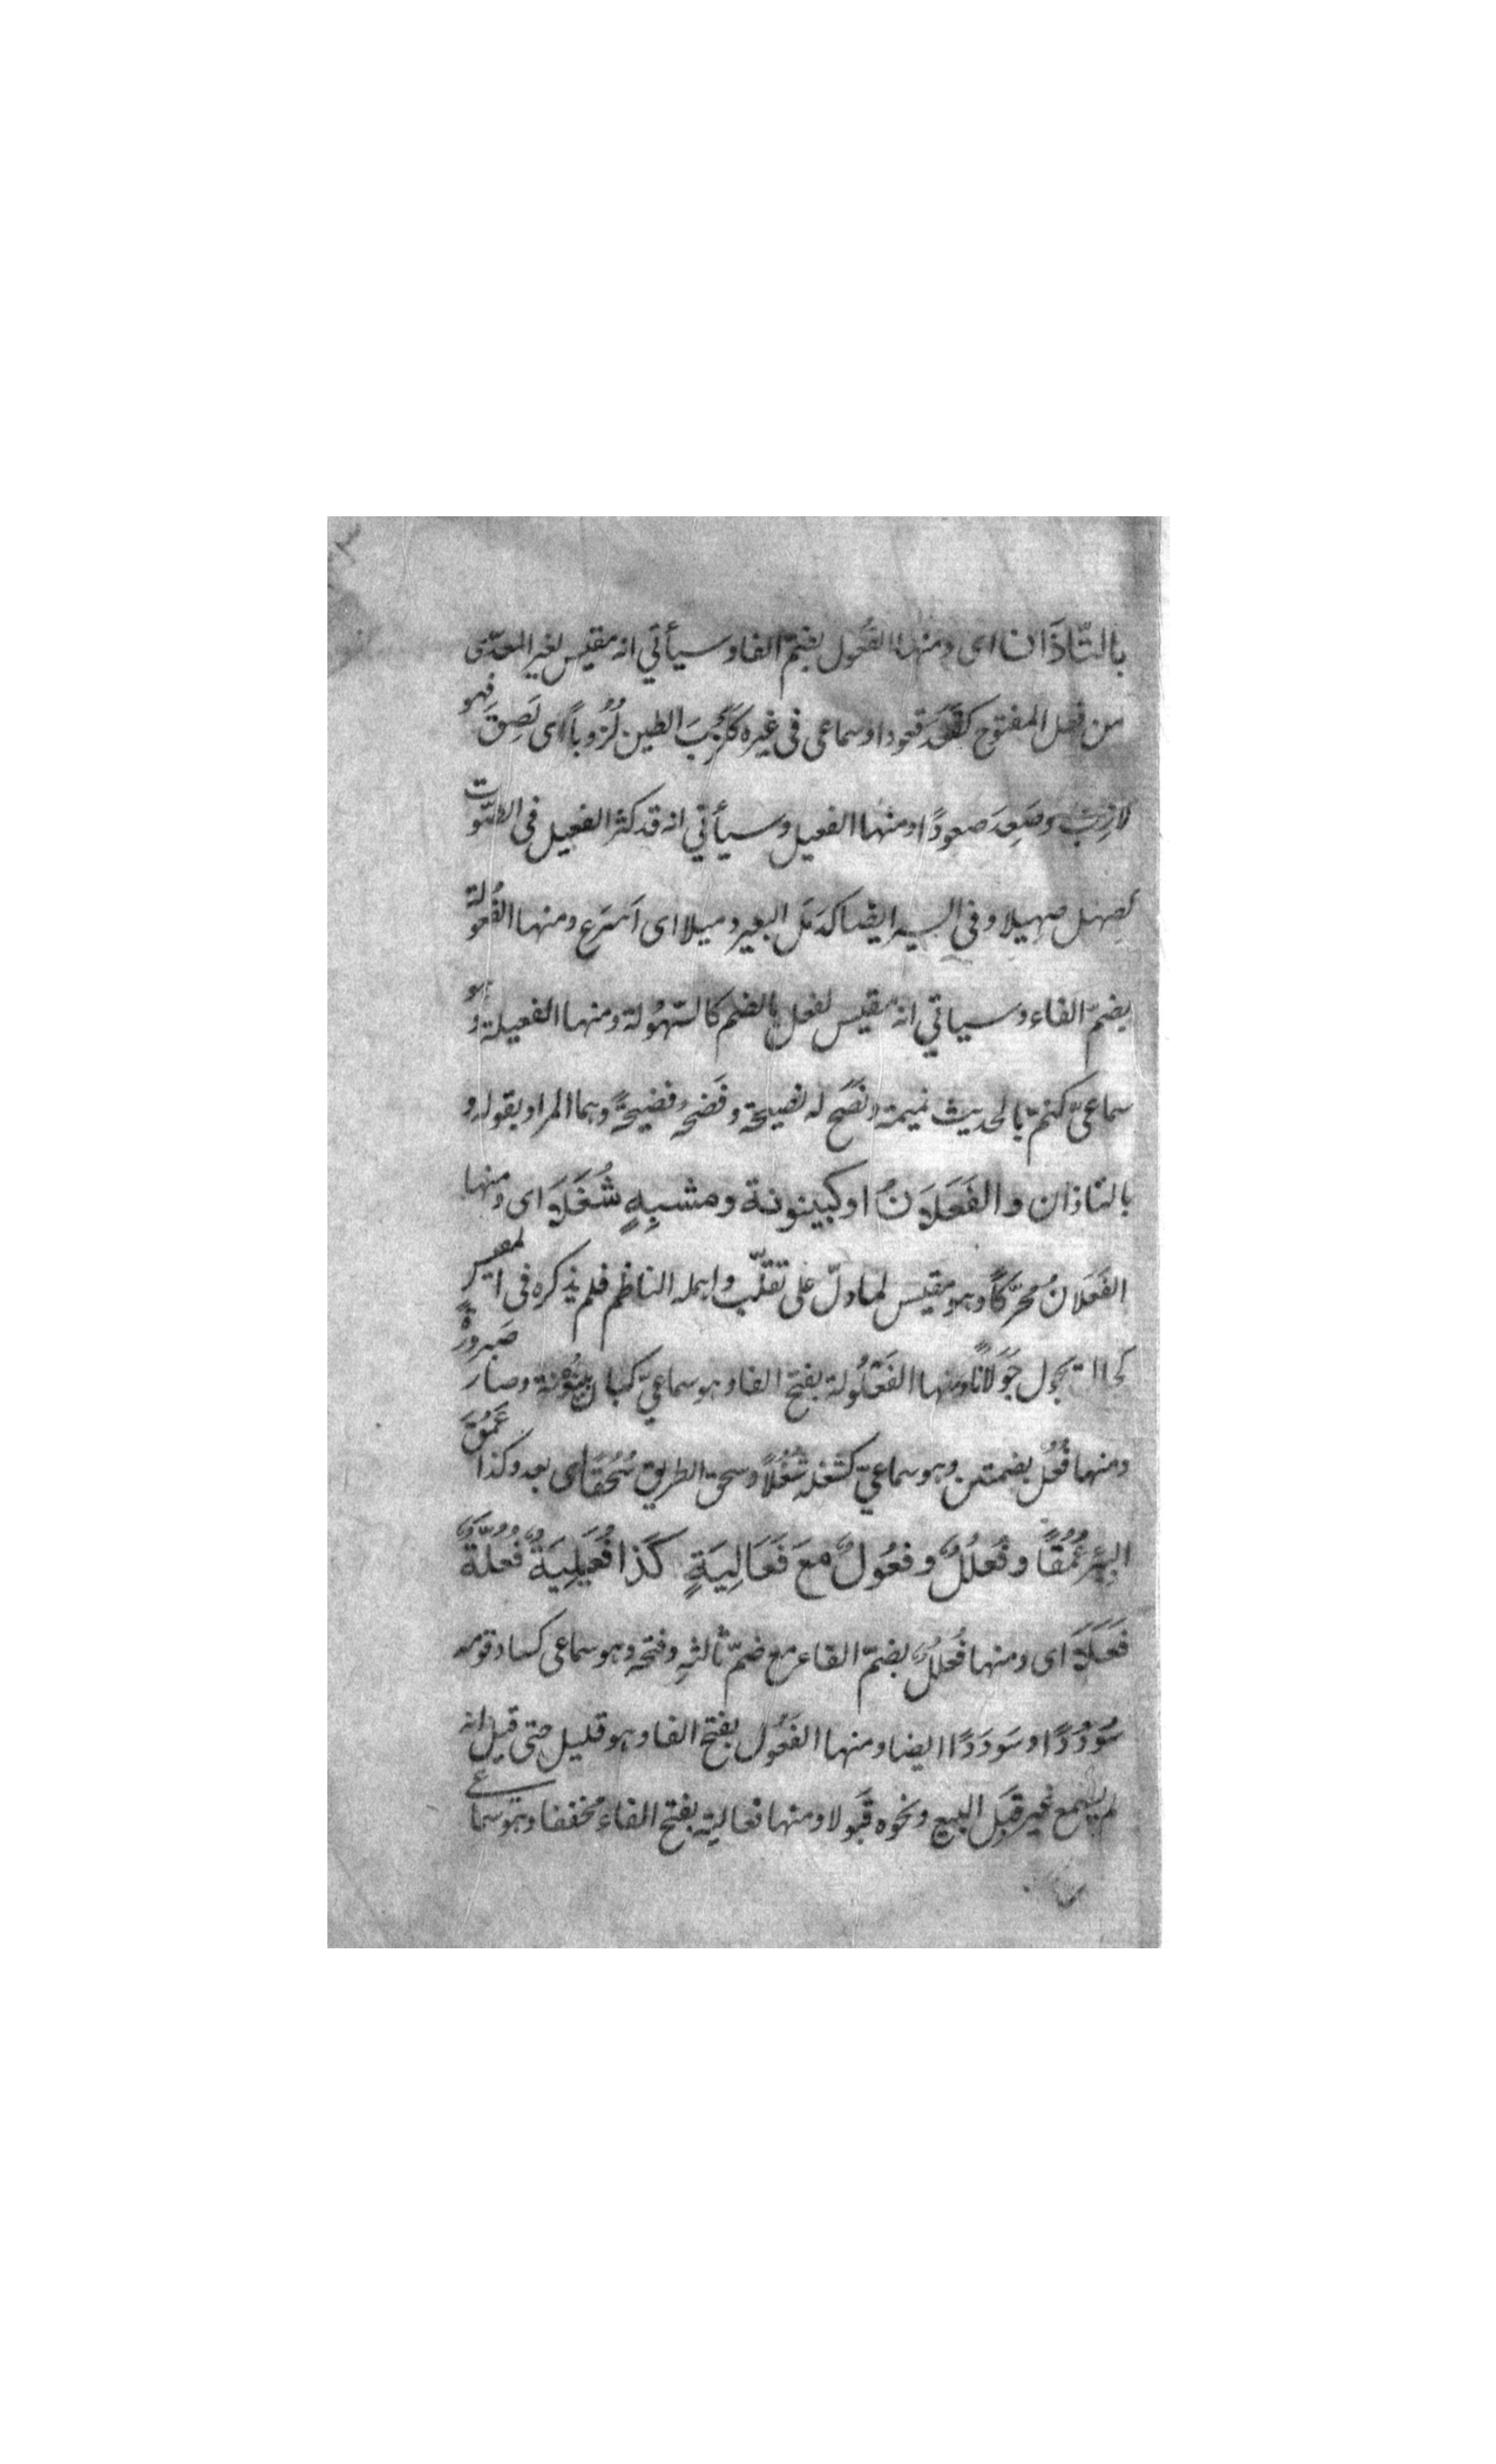 بالتّاذَان اى ومنها الفُعُول بضمّ الفا وسيأتي انه مقيس لغير المعدّى
من فعل المفتوح كقَعَدَ قعودا وسماعى فى غيره كلَزِبَ الطين لُزُوباً اى لَصِقَ فهو
لازِبٌ وصَعِدَ صعودًا ومنها الفعيل وسيأتي انه قد كثر الفعيل فى الصَّوت
كصهل صهيلا وفي السير ايضا كذَمَلَ البعير ذميلا اى اَسْرَع ومنها الفُعُولة
بضمّ الفاء وسياتي انه مقيس لفعل بالضم كالسّهُولة ومنها الفعيلة وهو
سماعىّ كنمّ بالحديث نميمة ونَصَح له نصيحة وفَضَحَه فضيحةً وهما المراد بقوله و
بالتاذان والفَعَلاَنُ اوكبينونة ومشبِهٍ شُغُلاَ اى ومنها
الفَعَلانُ محرّكًا وهو مقيس لما دلّ على تقلّب واهمله الناظم فلم يذكره فى المقيس
كجال يجول جَوَلانًا ومنها الفَعْلُولة بفتح الفا وهو سماعيّ كبان بَيْنُونة وصار صَيرورةً
ومنها فُعُل بضمتين وهو سماعيّ كشغله شُغُلاً وسحق الطريق سُحُقًا اى بعد وكذا عَمُقَ
البئر عُمُقًا وفُعلُلٌ وفعُولٌ مَعَ فَعَالِيَةٍ كَذا فُعَيلِيَةٌ فُعُلّةٌ
فَعَلاَ اى ومنها فُعلُلٌ بضمّ الفاء مع ضمّ ثالثهِ وفتحه وهو سماعى كساد قومه
سُوْدُدًا وسَودَدًا ايضا ومنها الفَعُول بفتح الفا وهو قليل حتى قيل انه
لم يسمع غير قبَل البيع ونحوه قَبُولا ومنها فعالية بفتح الفاء مخففا وهو سماعى